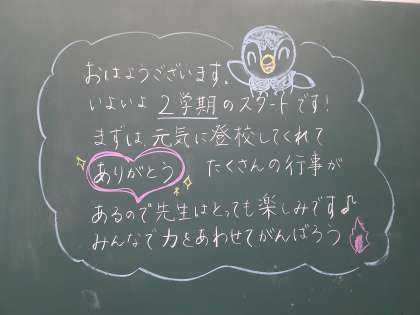 おはようございます。
いよいよ 2学期のスタートです!
まずは、元気に登校してくれて
ありがとう たくさんの行事が
あるので先生はとっても楽しみです♪
みんなで力をあわせてがんばろう